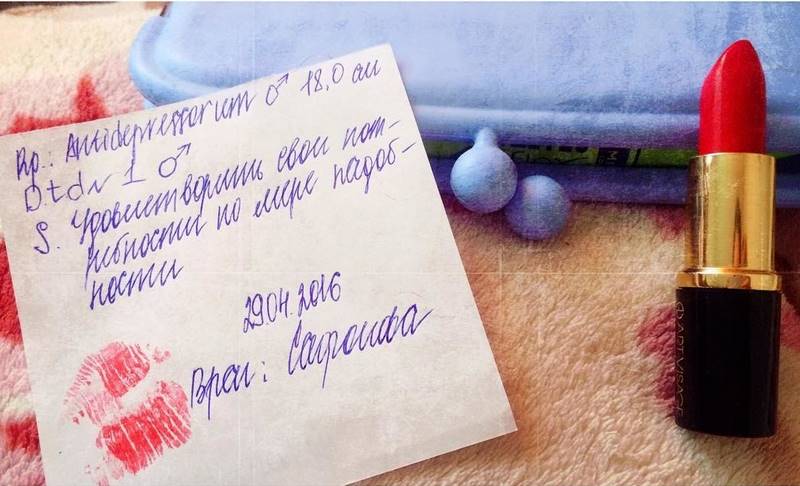 Rp.: Antidepressorum ♂ 18,0 см
D.t.d № 1 ♂
S. Удовлетворить свои пот-
ребности по мере надоб-
ности
29.04.2016
Врач: Сафонова
ART-VISAGE